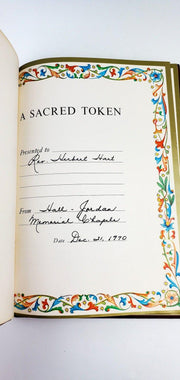 A SACRED TOKEN
Presented to
Rev. Herbert Hart
From Hall - Jordan
Memorial Chapels
Date Dec. 21, 1970